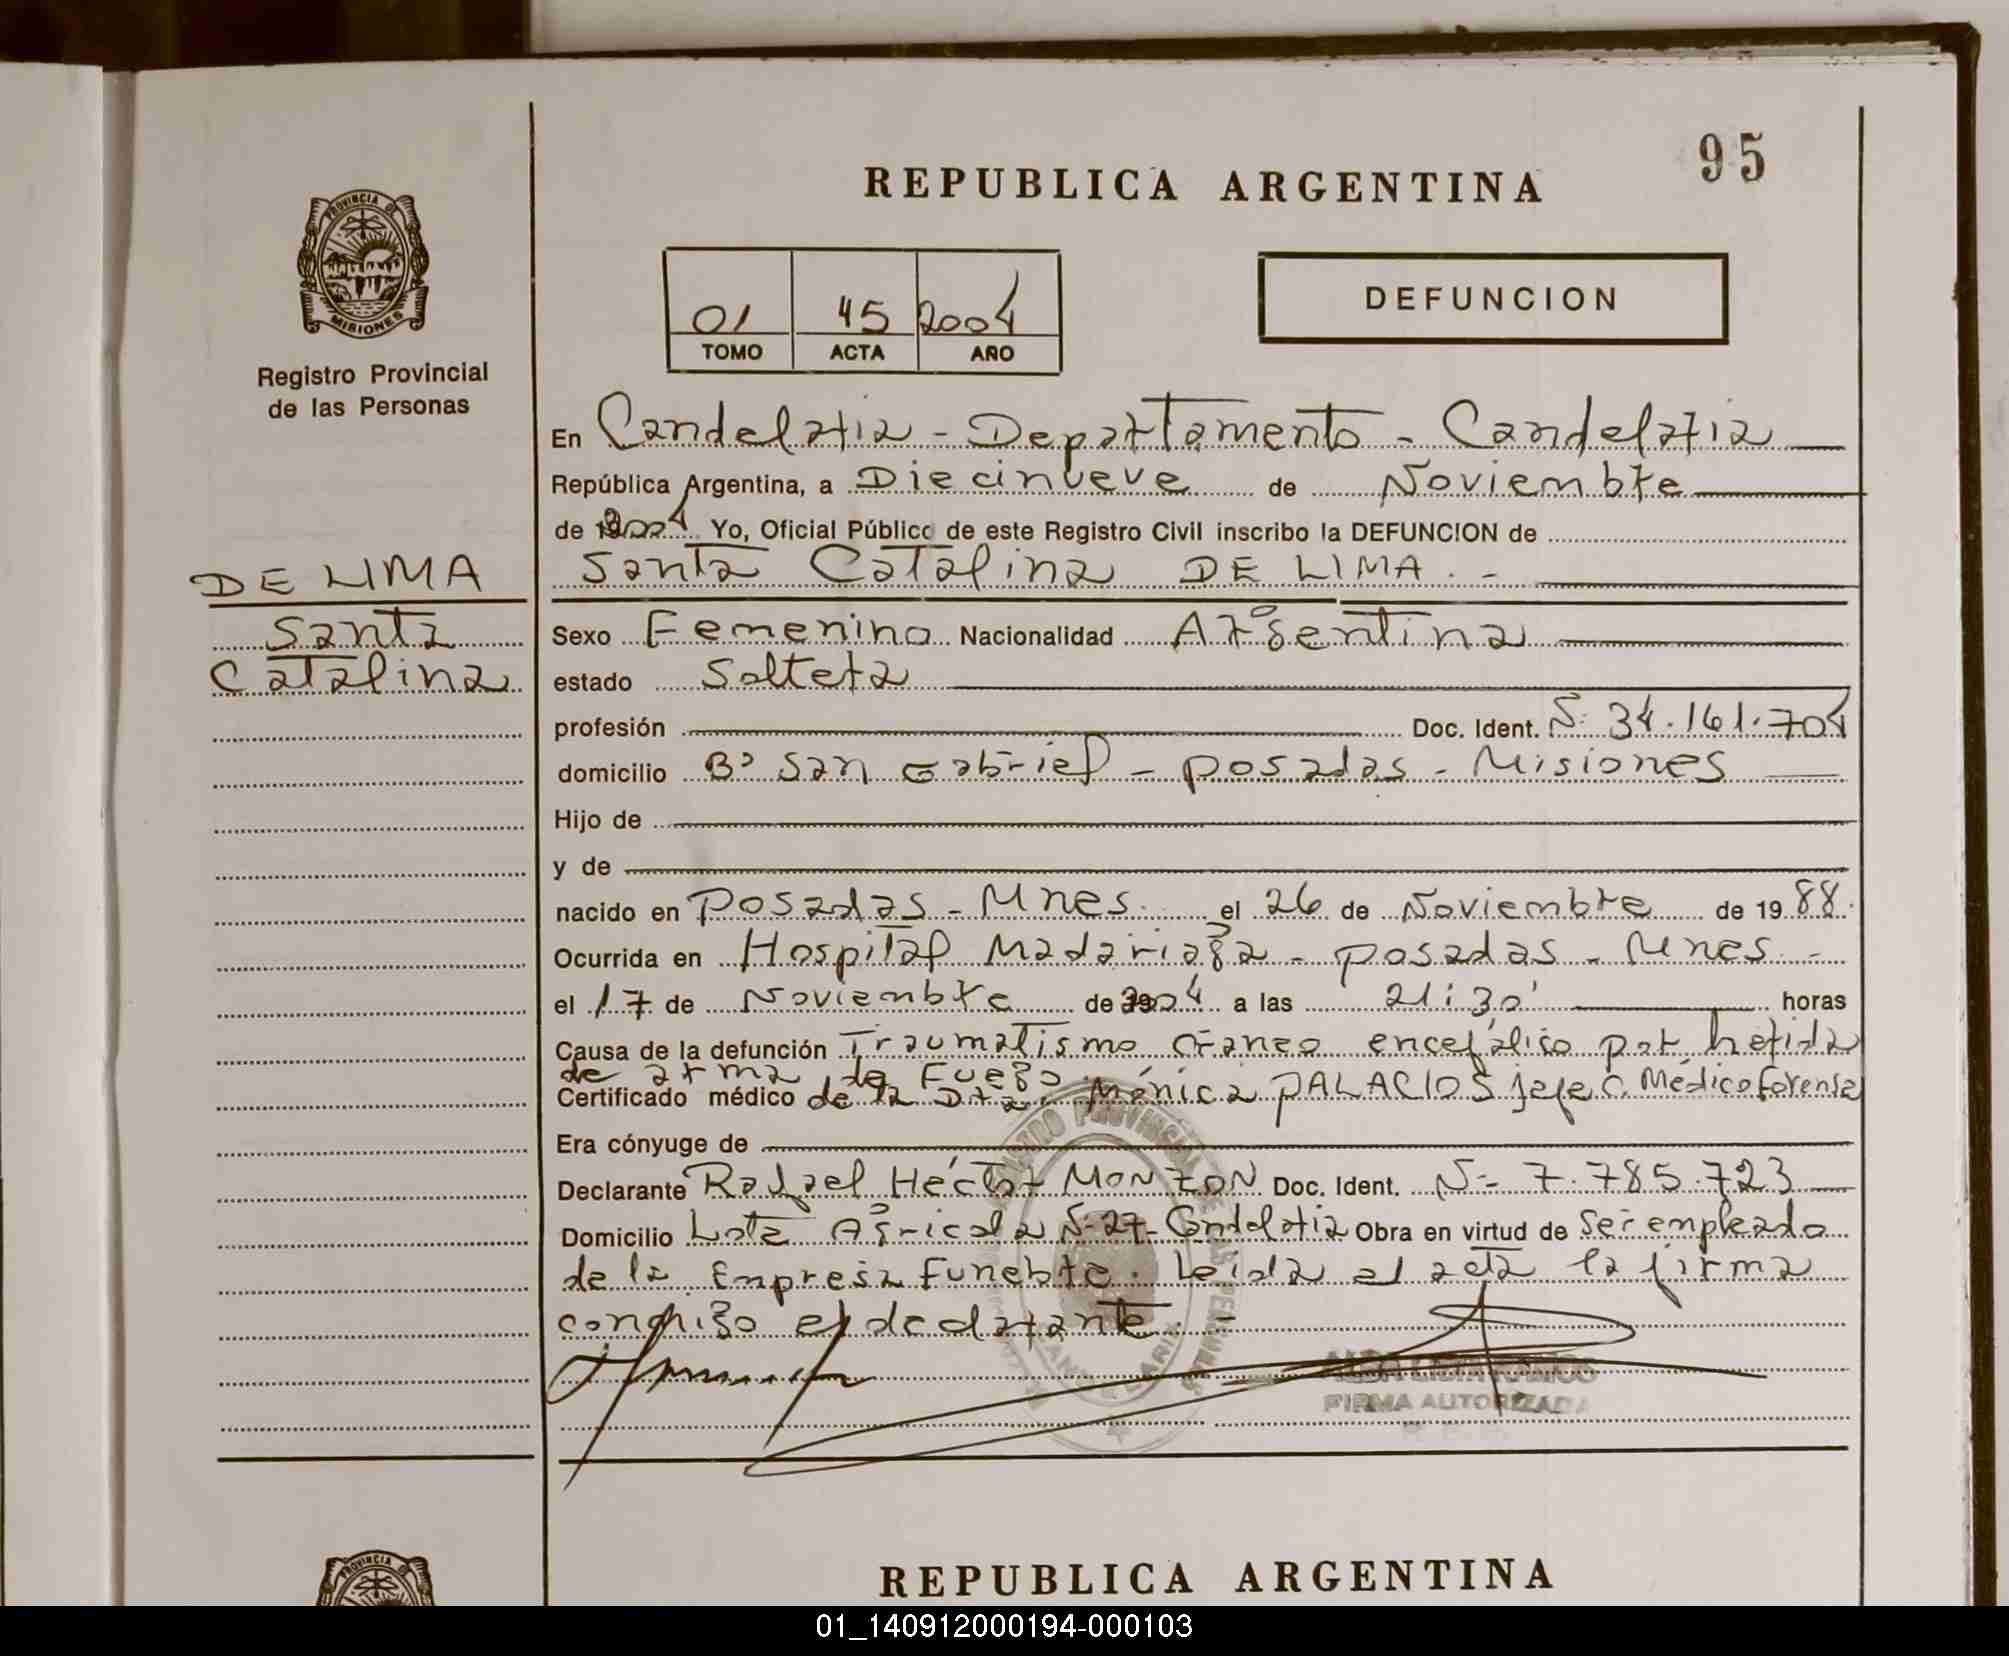 95
REPUBLICA ARGENTINA
PROVINCIA DE
MISIONES
Registro Provincial
de las Personas
01 45 2004
TOMO ACTA AÑO
DEFUNCION
En Candelaria - Departamento - Candelaria
República Argentina, a Diecinueve de Noviembre
de 2004 Yo, Oficial Público de este Registro Civil inscribo la DEFUNCION de
Santa Catalina DE LIMA. -
DE LIMA
Santa
Catalina
Sexo Femenino Nacionalidad Argentina
estado Soltera
profesión Doc. Ident. N: 34.161.704
domicilio Bº San Gabriel - Posadas - Misiones
Hijo de
y de
nacido en Posadas - Mnes. el 26 de Noviembre de 1988.
Ocurrida en Hospital Madariaga - Posadas - Mnes. -
el 17 de Noviembre de 2004 a las 21:30' horas
Causa de la defunción Traumatismo cráneo encefálico por herida
de arma de Fuego
Certificado médico de la Dra. Mónica PALACIOS jefe C. Médico Forense
Era cónyuge de
Declarante Rafael Héctor MONZON Doc. Ident. N:- 7.785.723
Domicilio Lote Agricola N:-27- Candelaria Obra en virtud de Ser empleado
de la Empresa Funebre. Leida el acta la firma
conmigo el declarante. -
REGISTRO PROVINCIAL DE LAS PERSONAS
CANDELARIA
FIRMA AUTORIZADA
PROVINCIA
REPUBLICA ARGENTINA
01_140912000194-000103